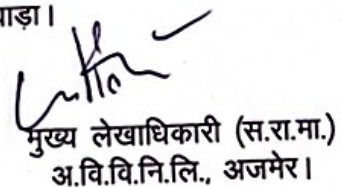 वाड़ा।
मुख्य लेखाधिकारी (स.रा.मा.)
अ.वि.वि.नि.लि., अजमेर।